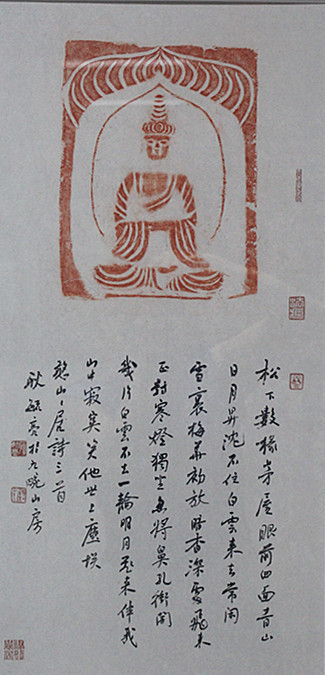 松下數椽茅屋眼前四面青山
日月昇沈不住白雲來去常閑
雪裏梅花初放暗香深夜飛來
正對寒燈獨坐忽將鼻孔衝開
幾片白雲不去一輪明月飛來伴我
山中寂寞笑他世上塵埃
憨山山居詩三首
耿毓亮於九畹山房